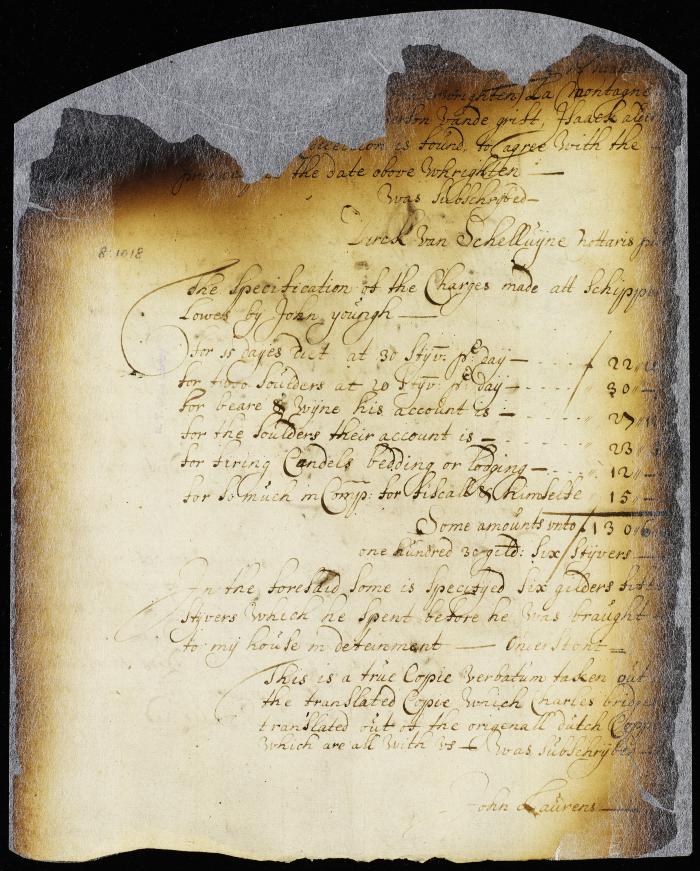 wrighten / La montagne
erson vande grist, Isaack
is found, to agree with the
the date above Whrighten —
Was Subschrybed —
Dirck Van Schelluyne nottaris
8:1018
The Specification of the Charges made att Schipp
Lowes by John youngh —
for 15 dayes diet at 30 styv: pr day — 22
for twoo souldiers at 20 styv: pr day — 30
for beare & Wyne his account is — 27
for the souldiers their account is — 23
for firing Candels bedding or lodging — 12
for so much in Comp: for fiscall & himselfe 15
Some amounts unto 130 6
one hundred 30 gild: six / styvers —
In the foresaid some is specifyed six gilders
styvers Which he spent before he Was braught
to my house in detainment —
This is a true Copie Verbatum taken out
the translated Copie Which Charles bridge
translated out of the origenall ditch Copp
Which are all With Vs — Was subschrybed —
John Laurens —